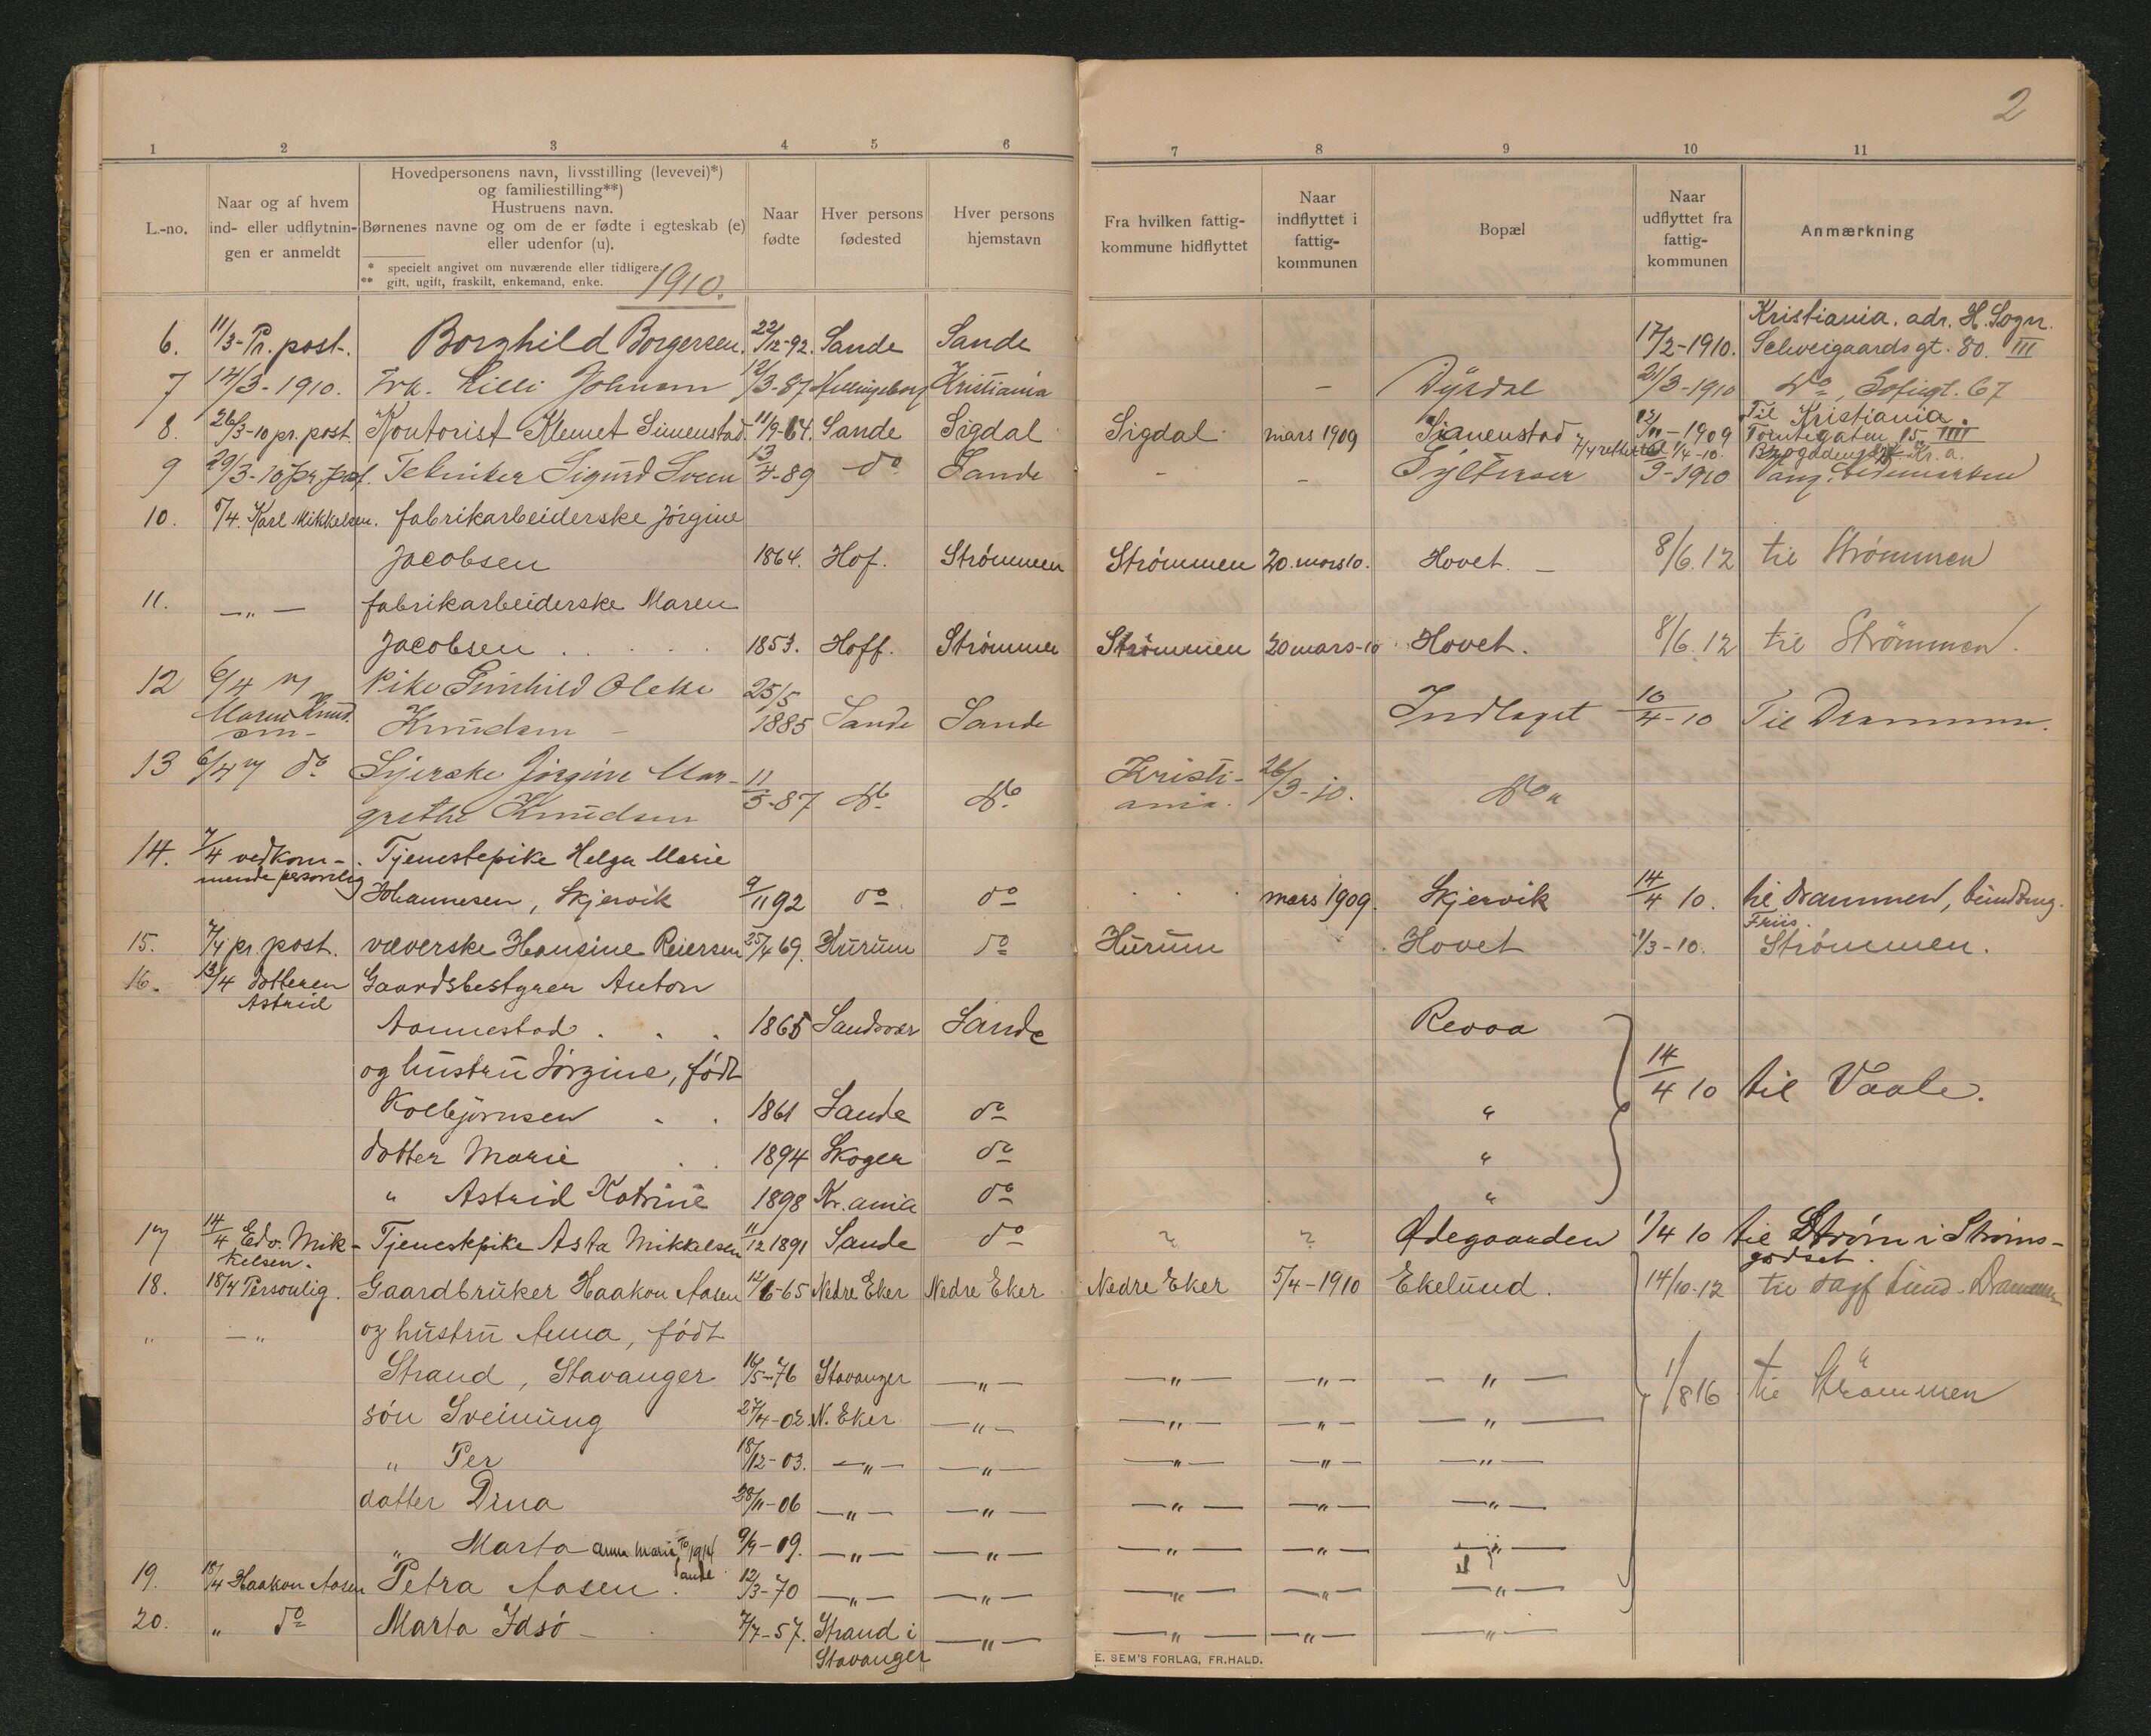 2
1 2 3 4 5 6 7 8 9 10 11
L.-no.
Naar og af hvem
ind- eller udflytnin-
gen er anmeldt
Hovedpersonens navn, livsstilling (levevei)*)
og familiestilling**)
Hustruens navn.
Børnenes navne og om de er fødte i egteskab (e)
eller udenfor (u).
* specielt angivet om nuværende eller tidligere
** gift, ugift, fraskilt, enkemand, enke.
1910.
Naar
fødte
Hver persons
fødested
Hver persons
hjemstavn
Fra hvilken fattig-
kommune hidflyttet
Naar
indflyttet i
fattig-
kommunen
Bopæl
Naar
udflyttet fra
fattig-
kommunen
Anmærkning
Kristiania. adr. H. Sogn.
6. 11/3- Pr. post-. Borghild Borgersen. 22/12-92. Sande Sande 17/2-1910. Schweigaardsgt. 80. III
7 12/3-1910. Frk. Lilli Johnsen 12/3-87 Kristiania - Dyrdal 21/3-1910 do, Sofiegt. 67
Til Kristiania.
8. 26/3-10 pr. post. Kontorist Klemet Simenstad. 11/9-64. Sande Sigdal Sigdal mars 1909 Simenstad 12/11-1909 Tomtegaten 15 IIII
9 29/3-10 pr. post. Tekniker Sigurd Svern 13/4-89 do Sande - - 9-1910 Vang. Hedemarken
10. 5/4. Karl Mikkelsen. fabrikarbeiderske Jørgine
Jacobsen 1864. Hof. Strømmen Strømmen 20. mars 10. Hovet. - 8/6.12 til Strømmen
11. -"- fabrikarbeiderske Maren
Jacobsen . . . . . 1853. Hoff. Strømmen Strømmen 20 mars-10 Hovet. 8/6.12 til Strömmen.
12 6/4 Pike Gunhild Oleke 25/5
Maren Knud-
sen- Knudsen - 1885 Sande Sande Indlaget 10/4-10 Til Drammen.
13 6/4 do Syerske Jørgine Mar- 11/5-87 do do Kristi- 26/3-10. do"
grethe Knudsen ania.
14. 7/4 vedkom- Tjenestepike Helga Marie
mende personlig Johannesen, Skjervik 9/11 92 do do mars 1909. Skjervik 14/4 10. til Drammen,
Friis.
15. 7/4 pr. post. væverske Hansine Reiersen 25/4 69. Hurum do Hurum Hovet 1/3-10. Strømmen.
16. 13/4 dotteren Gaardsbestyrer Anton
Astrid
Aannestad . . . 1865 Sandsvær Sande Revaa
og hustru Jørgine, født 14/4 10 til Vaale.
Kolbjørnsen . . 1861 Sande do "
dotter Marie . . 1894 Skoger do "
" Astrid Katrine 1898 Kr.ania do "
17 14/4 Edv. Mik- Tjenestepike Asta Mikkelsen 11/12 1891 Sande do ? ? Ødegaarden 1/4 10 til Strøm i Strøms-
kelsen. godset.
18. 18/4 Personlig. Gaardbruker Haakon Aasen 12/6-65 Nedre Eker Nedre Eker Nedre Eker 5/4-1910 Ekelund. 14/10-12 til Dagf Lund-Drammen
" -" og hustru Anna, født
Strand, Stavanger 16/5-76 Stavanger -"- -"- -"- -"- 1/8 16 til Strömmen
søn Sveinung 27/4-02. N. Eker -"- -"- -"- -"-
" Per 18/12-03. -"- -"- -"- -"- -"-
datter Dina 28/11-06 -"- -"- -"- -"- -"-
" Marta Anna Marie 1914 Sande 9/9-09. -"- -"- -"- -"- -"-
19. 18/4 Haakon Aasen Petra Aasen. 12/3-70 -"- -"- -"- -"- -"-
20. " do Marta Idsø - 7/7-57. Strand i -"- -"- -"- -"-
Stavanger
E. SEM'S FORLAG, FR.HALD.